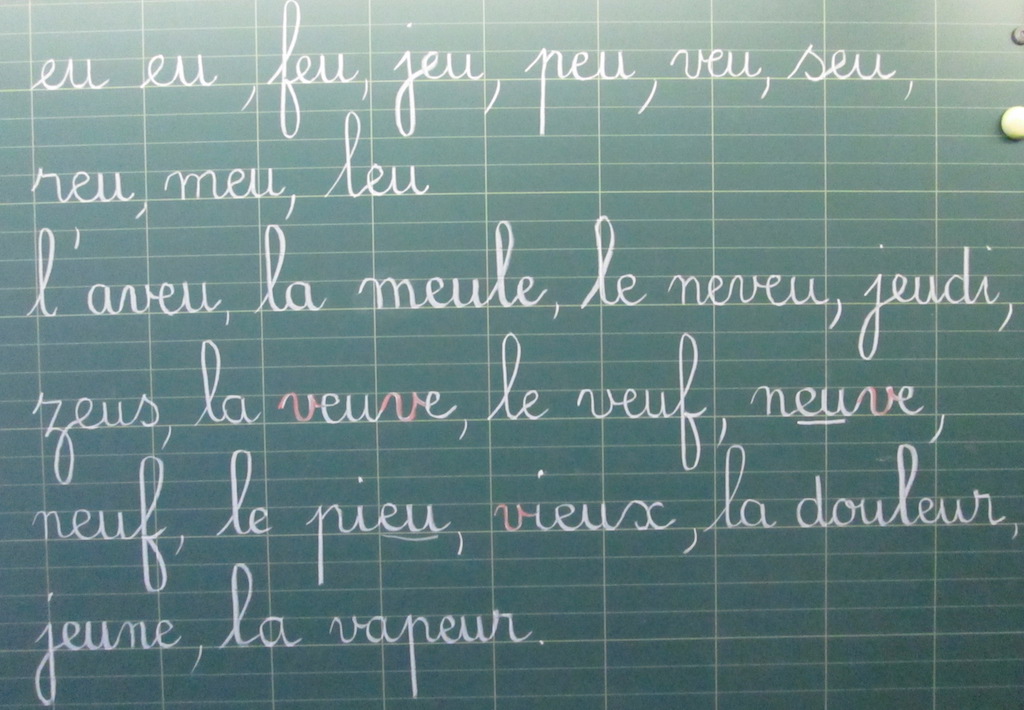 eu eu, feu, jeu, peu, veu, seu,
reu, meu, leu
l'aveu, la meule, le neveu, jeudi,
zeus, la veuve, le veuf, neuve,
neuf, le pieu, vieux, la douleur,
jeune, la vapeur.